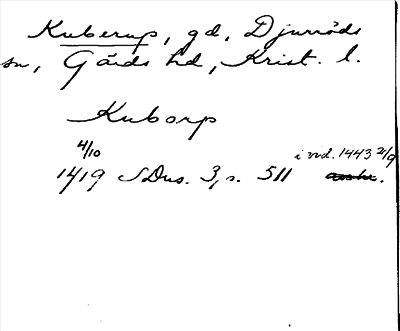 Kuberup, gd, Djurröds
sn, Gärds hd, Krist. l.
Kuborp
4/10 i vid. 1443 2/9
1419 SDns. 3, s. 511 avskr.